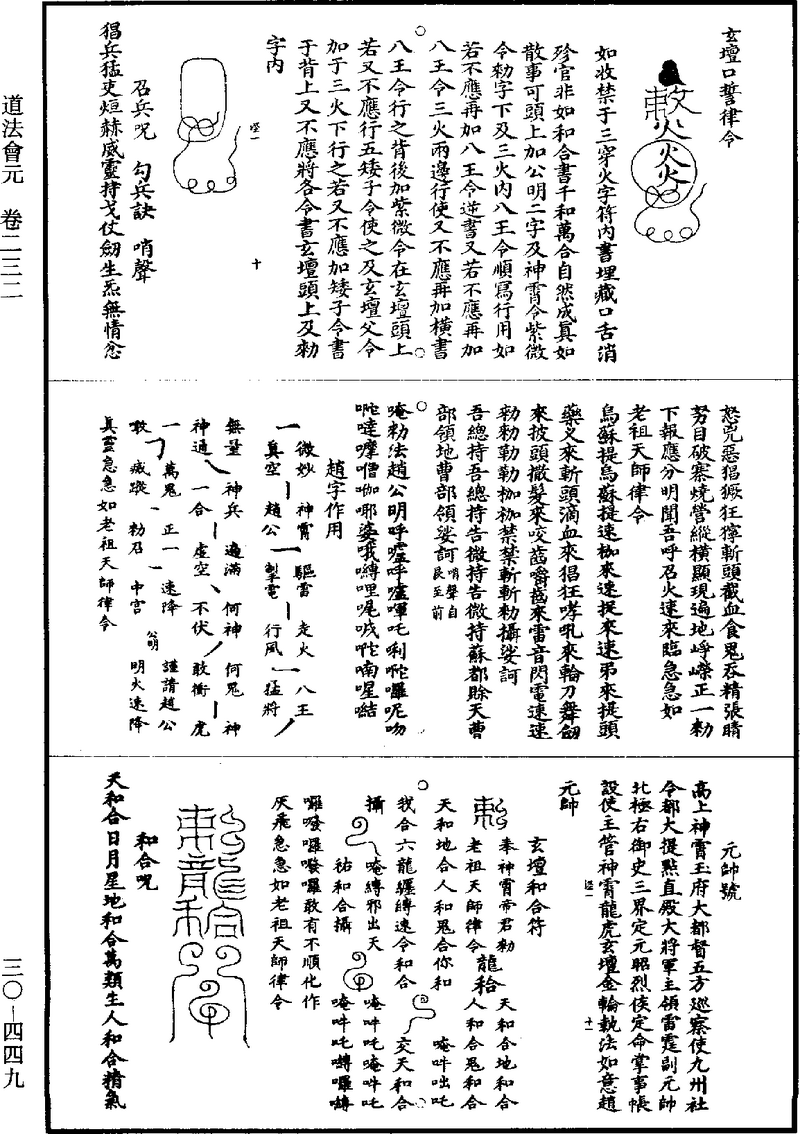 道法會元　卷二三二
三〇－四四九
玄壇口誓律令
如收禁于三穿火字符內書埋藏口舌消
殄官非如和合書千和萬合自然成真如
散事可頭上加公明二字及神霄令紫微
令勑字下及三火內八王令順寫行用如
若不應再加八王令逆書又若不應再加
八王令三火兩邊行使又不應再加橫書
八王令行之背後加紫微令在玄壇頭上
若又不應行五矮子令使之及玄壇父令
加于三火下行之若又不應加矮子令書
于背上又不應將各令書玄壇頭上及勑
字內
十
召兵呪　勾兵訣　哨聲
猖兵猛吏烜赫威靈持戈仗劒生炁無情忿
怒兇惡猖獗狂獰斬頭截血食鬼吞精張睛
努目破寨燒營縱橫顯現遍地崢嶸正一勑
下報應分明聞吾呼召火速來臨急急如
老祖天師律令
烏蘇提烏蘇提速枷來速捉來速弔來提頭
藥乂來斬頭滴血來猖狂哮吼來輪刀舞劒
來披頭撒髮來咬齒嚼齒來雷音閃電速速
勑勑勒勒枷枷禁禁斬斬勑攝娑訶
吾總持吾總持告微持告微持蘇都賒天曹
部領地曹部領娑訶哨聲自艮至前
唵勑法趙公明呼𠷺呼𠷺㖇吒唎
趙字作用
微妙　神霄　驅雷　走火　八王
真空　趙公　掣電　行風　猛將
無量　神兵　遍滿　何神　何鬼　神
神通　一合　虛空　不伏　敢衝　虎
一　萬鬼　正一　速降　謹請趙公
敢　滅蹤　勑召　中宮　公明　明火速降
真靈急急如老祖天師律令
元帥號
高上神霄玉府大都督五方巡察使九州社
令都大提點直殿大將軍主領雷霆副元帥
北極右御史三界定元昭烈侯定命掌事帳
設使主管神霄龍虎玄壇金輪執法如意趙
元帥
十一
玄壇和合符
奉神霄帝君勑　天和合地和合
老祖天師律令　人和合鬼和合
天和地合人和鬼合你和　唵吽吒
我合六龍纏縛速令和合　交天和合
攝　唵縛邪出天　唵吽吒唵吽吒
祐和合攝
囉囉敢有不順化作
灰飛急急如老祖天師律令
和合呪
天和合日月星地和合萬類生人和合精氣